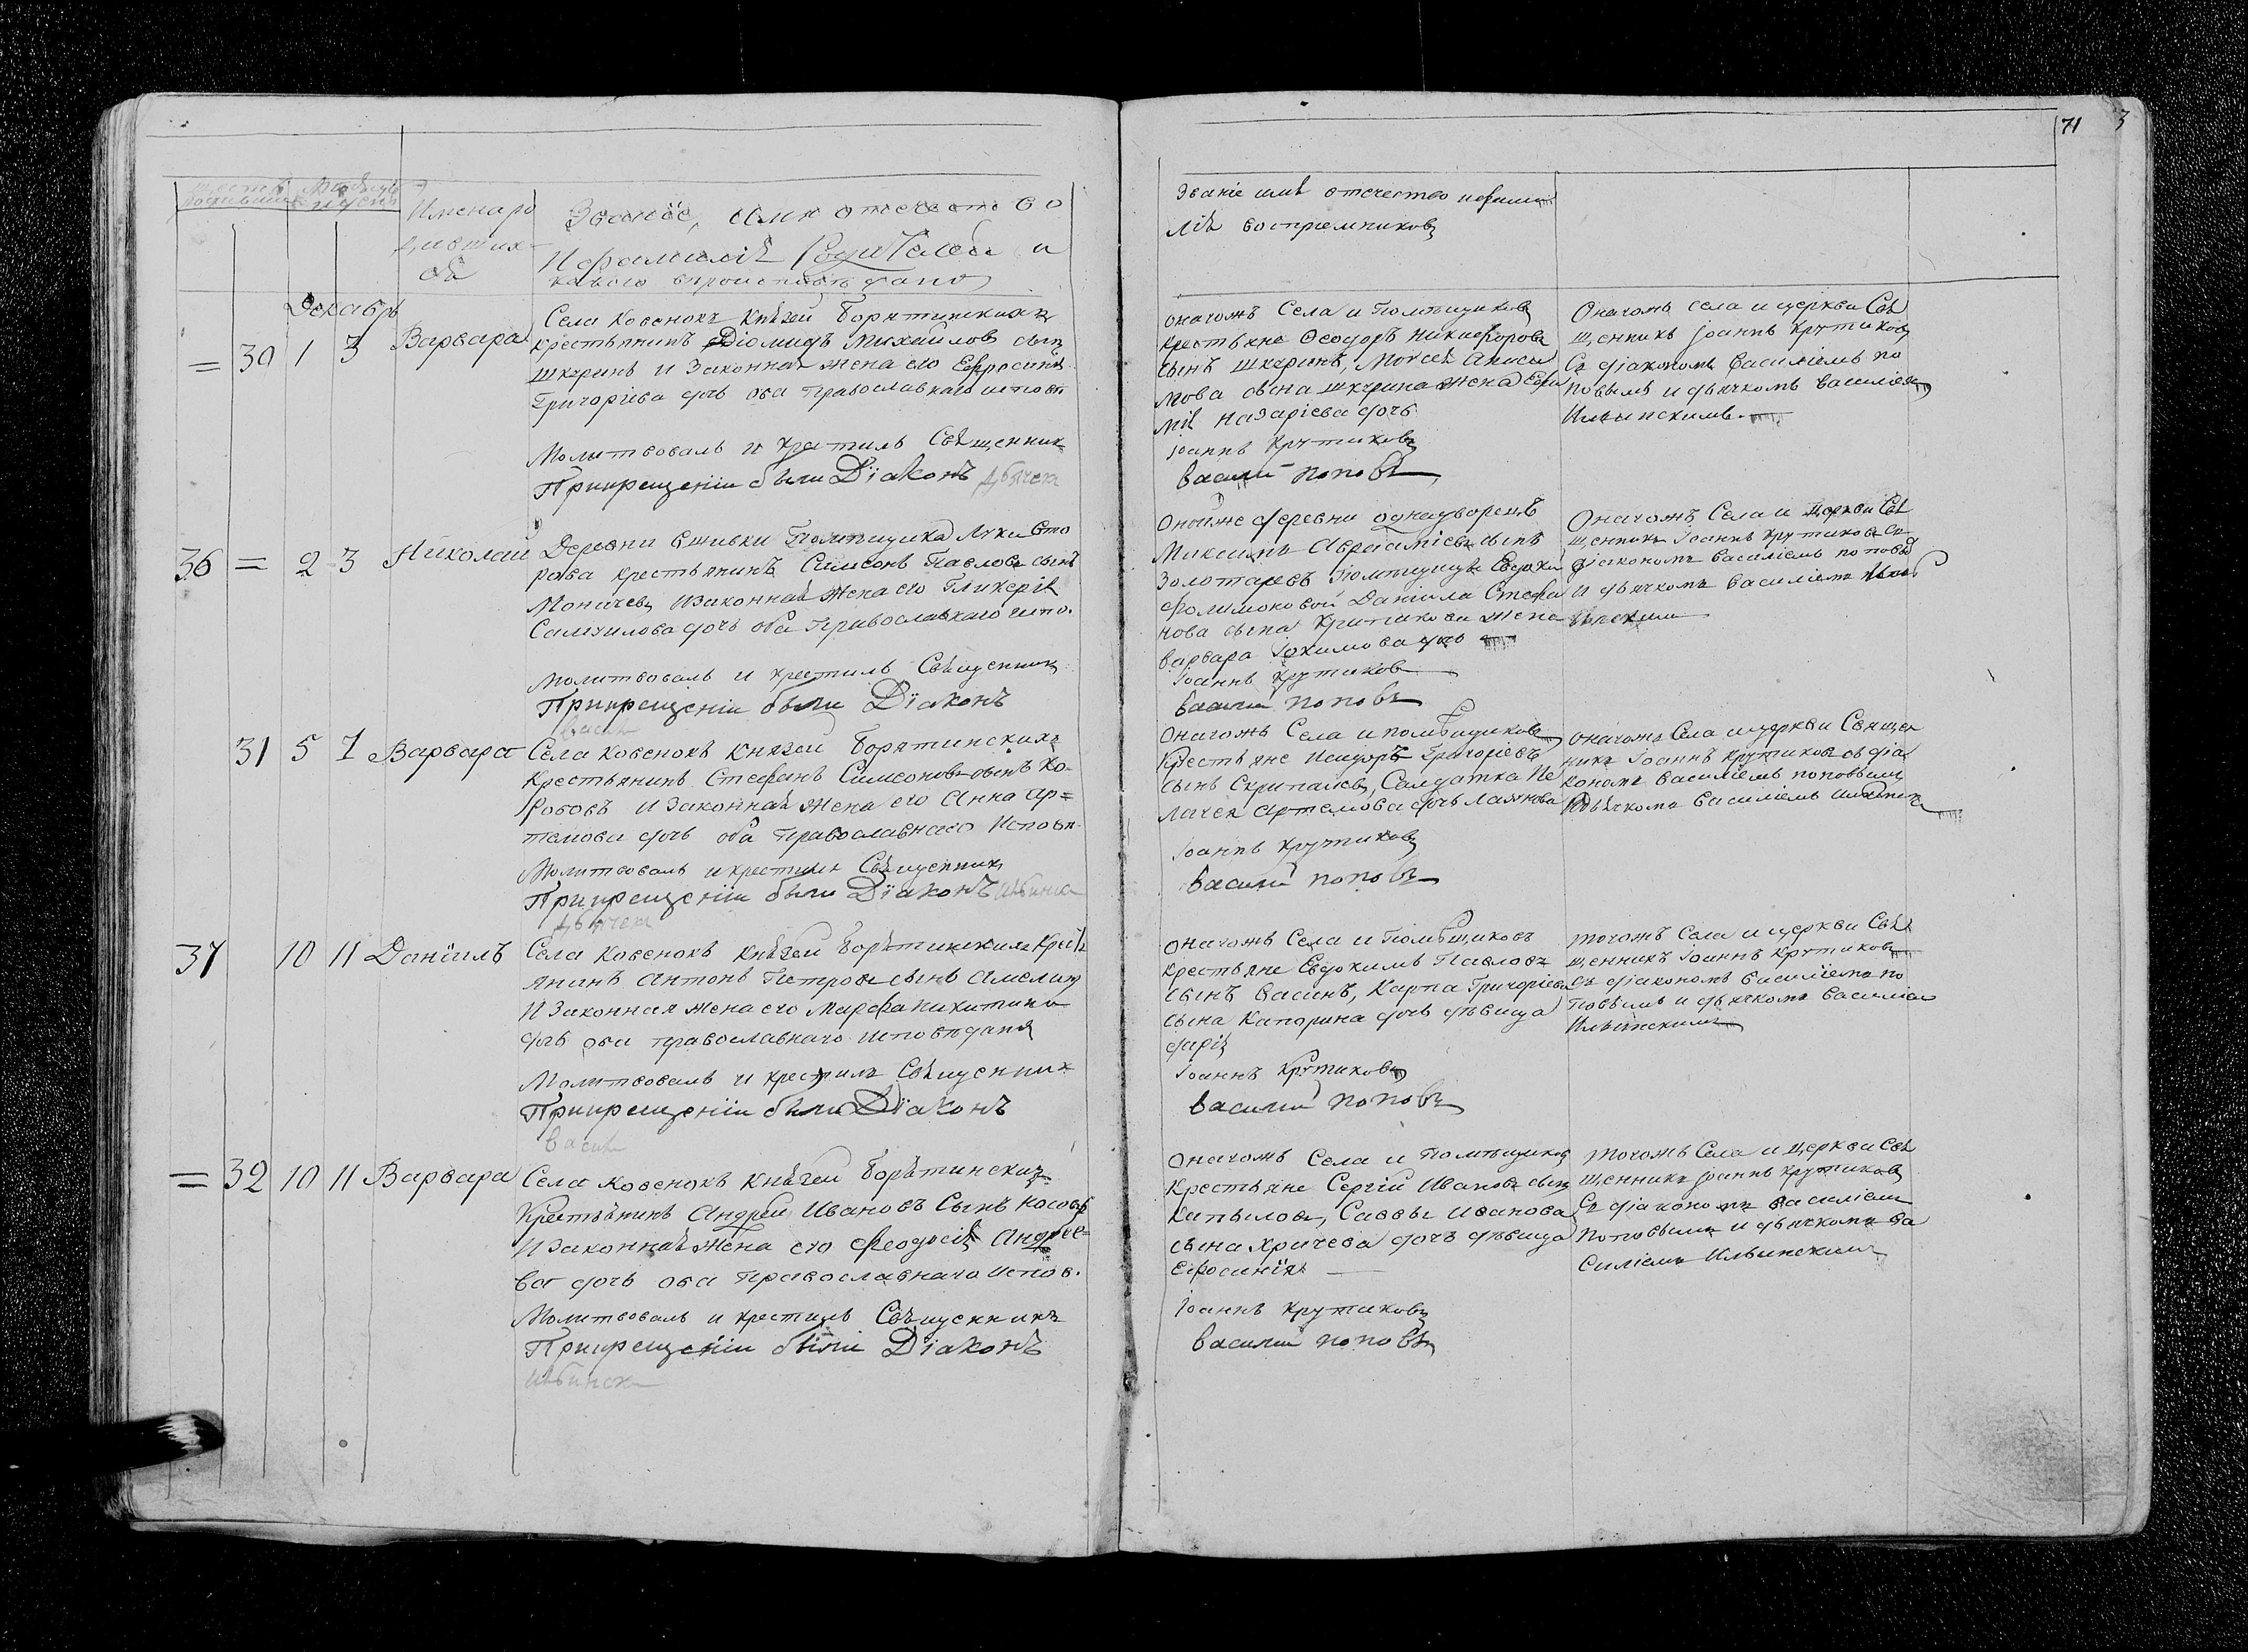 71
3
Имена ро
дивших
ся
Званіе, имя отечество
И фамилія Родителей и
какого вѣроисповѣданія
Званіе имя отечество и фами
лія воспріемниковъ
Декабрь
= 30 1 3 Варвара
Села Ковенокъ Князей Борятинскихъ
крестьянинъ Діомидъ Михайловъ сынъ
Шкаринъ и Законная жена его Ефросинія
Григоріева дочь оба Православнаго исповѣ
Молитвовалъ и крестилъ Священникъ
При крещеніи были Діаконъ дьячекъ
Оначожъ Села и Помѣщиковъ
крестьяне Ѳеодоръ Никифоровъ
сынъ Шкаринъ, Моисея Аниси
мова сына Шкурина жена Евфи
мія Назаріева дочь
Іоаннъ Крутиковъ
Василій Поповъ
Оначожъ села и церкви Свя
щенникъ Іоаннъ Крутиковъ
Съ діакономъ Василіемъ По
повымъ и дьячкомъ Василіемъ
Ильинскимъ.
36 = 2 3 Николай
Деревни Помѣщика Луки Его
рова крестьянинъ Симеонъ Павловъ сынъ
Моничевъ и Законная жена его Гликерія
Самуилова дочь оба Православнаго испо.
Молитвовалъ и крестилъ Священникъ
При крещеніи были Діаконъ
Васил
Онойже деревни однодворецъ
Максимъ Авраамиевъ сынъ
Золотаревъ Помѣщицы Евдокіи
Филимоновой Даніила Стефа
нова сына Критикова жена
Варвара Іокимова дочь
Іоаннъ Крутиковъ
Василій Поповъ
Оначожъ Села и Церкви Свя
щенникъ Іоаннъ Крутиковъ съ
діакономъ Василіемъ Поповы
и дьячкомъ Василіемъ Иль
инскимъ
31 5 7 Варвара
Села Ковенокъ Князей Борятинскихъ
Крестьянинъ Стефанъ Симеоновъ сынъ Ко-
робовъ и Законная жена его Анна Ар=
темова дочь оба Православнаго Исповѣ.
Молитвовалъ и крестилъ Священникъ
При крещеніи были Діаконъ
дьячекъ
Оначожъ Села и помѣщиковъ
Крестьяне Исидоръ Григоріевъ
сынъ Скрипалевъ, Салдатка Пе
лагея Артемова дочь
Іоаннъ Крутиковъ
Василій Поповъ
Оначожъ Села и церкви Священ
никъ Іоаннъ Крутиковъ съ діа
кономъ Василіемъ Поповымъ
и дьячкомъ Василіемъ
37 10 11 Даніилъ
Села Ковенокъ Князей Борятинскихъ Кресть
янинъ Антонъ Петровъ сынъ Амелинъ
и Законная жена его Марфа Никитина
дочь оба православнаго исповѣданія
Молитвовалъ и крестилъ Священникъ
При крещеніи были Діаконъ
Васил
Оначожъ Села и Помѣщиковъ
крестьяне Евдокимъ Павловъ
сынъ Васинъ, Карпа Григоріева
сына Капорина дочь дѣвица
Дарія
Іоаннъ Крутиковъ
Василій Поповъ
Тогожъ Села и церкви Свя
щенникъ Іоаннъ Крутиковъ
Съ діакономъ Василіемъ По
повымъ и дьячкомъ Василіемъ
Ильинскимъ
= 32 10 11 Варвара
Села Ковенокъ Князей Борятинскихъ
Крестьянинъ Андрей Ивановъ Сынъ Косовъ
и Законная жена его Феодосія Андрее=
ва дочь оба Православнаго Испов.
Молитвовалъ и крестилъ Священникъ
При крещеніи были Діаконъ
Ильинск
Оначожъ Села и Помѣщиковъ
Крестьяне Сергій Ивановъ сынъ
Капыловъ, Саввы Иванова
сына Хричева дочь дѣвица
Ефросинія
Іоаннъ Крутиковъ
Василій Поповъ
Тогожъ Села и Церкви Свя
щенникъ Іоаннъ Крутиковъ
Съ діакономъ Василіемъ
Поповымъ и дьячкомъ Ва
силіемъ Ильинскимъ